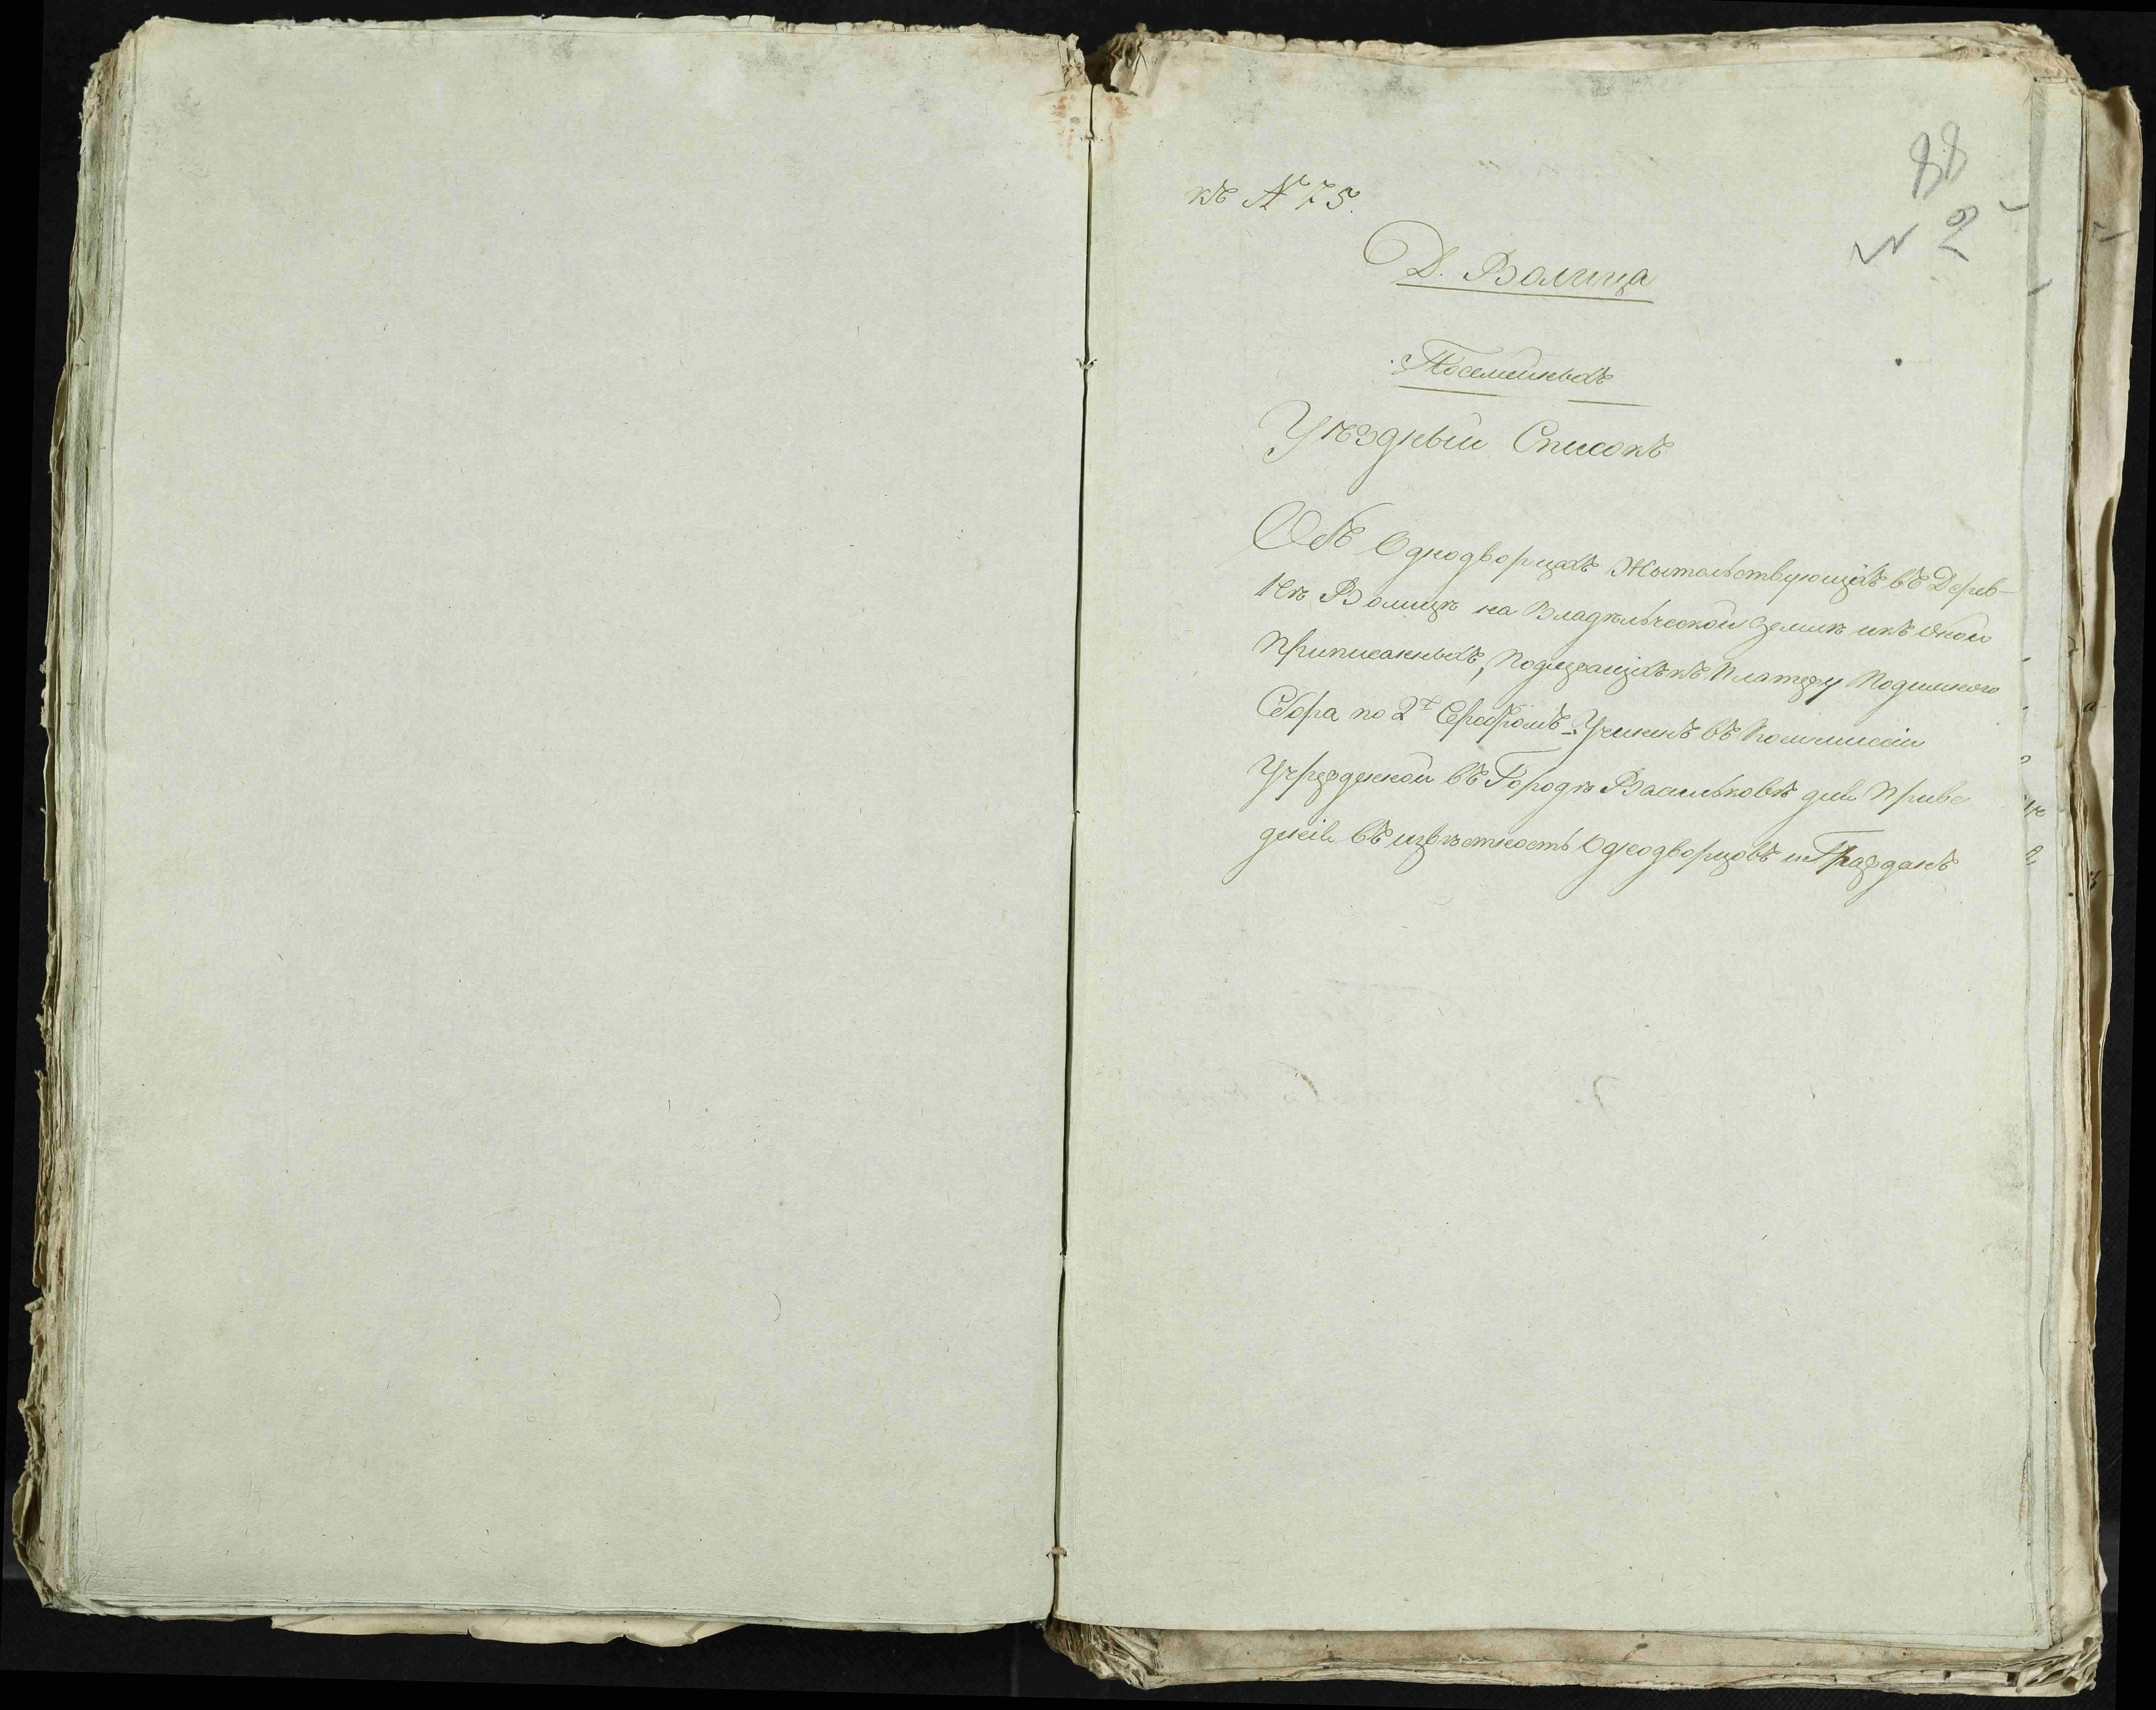 88
къ № 75.
№ 2
Д. Волица
Посемейныхъ
Уѣздный Списокъ
Объ Однодворцахъ Жытольствующихъ въ Дерев-
нѣ Волицѣ на Владѣльческой Землѣ икъ оной
Приписанныхъ, Подлежащихъ къ Платежу Подымного
Сбора по 2 Серебромъ. Учиненъ въ Коммиссіи
Учрежденной въ Городѣ Васильковѣ для Приве
денія въ извѣстность Однодворцовъ и Гражданъ